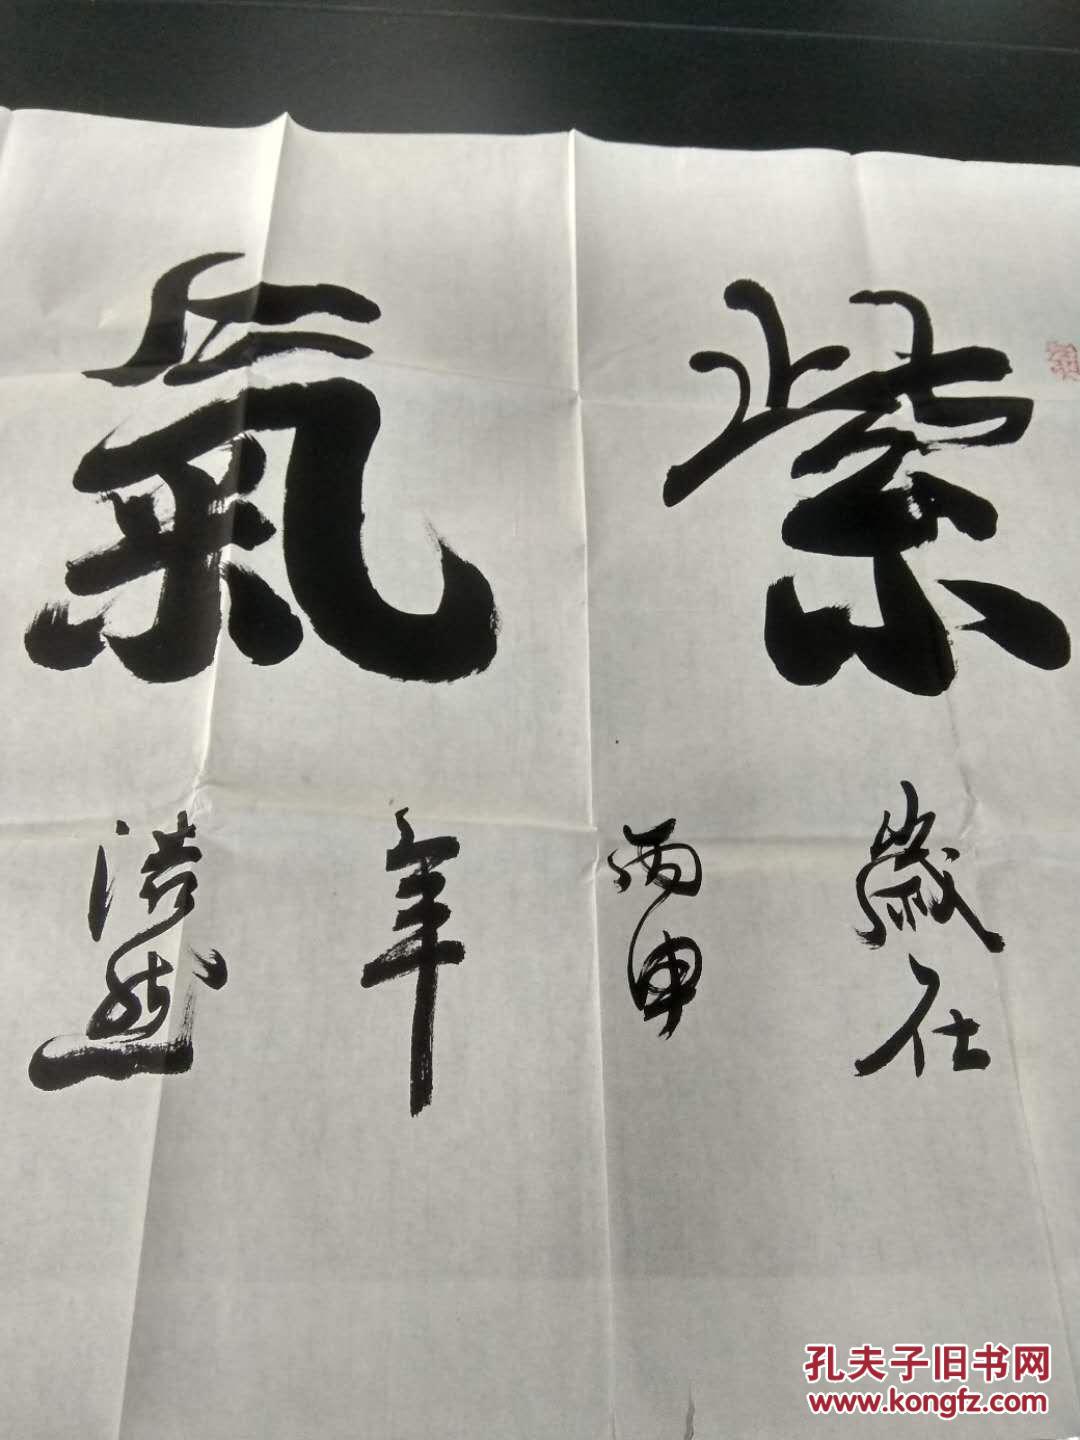 紫氣
歲在
丙申
年
浩然
孔夫子旧书网
www.kongfz.com